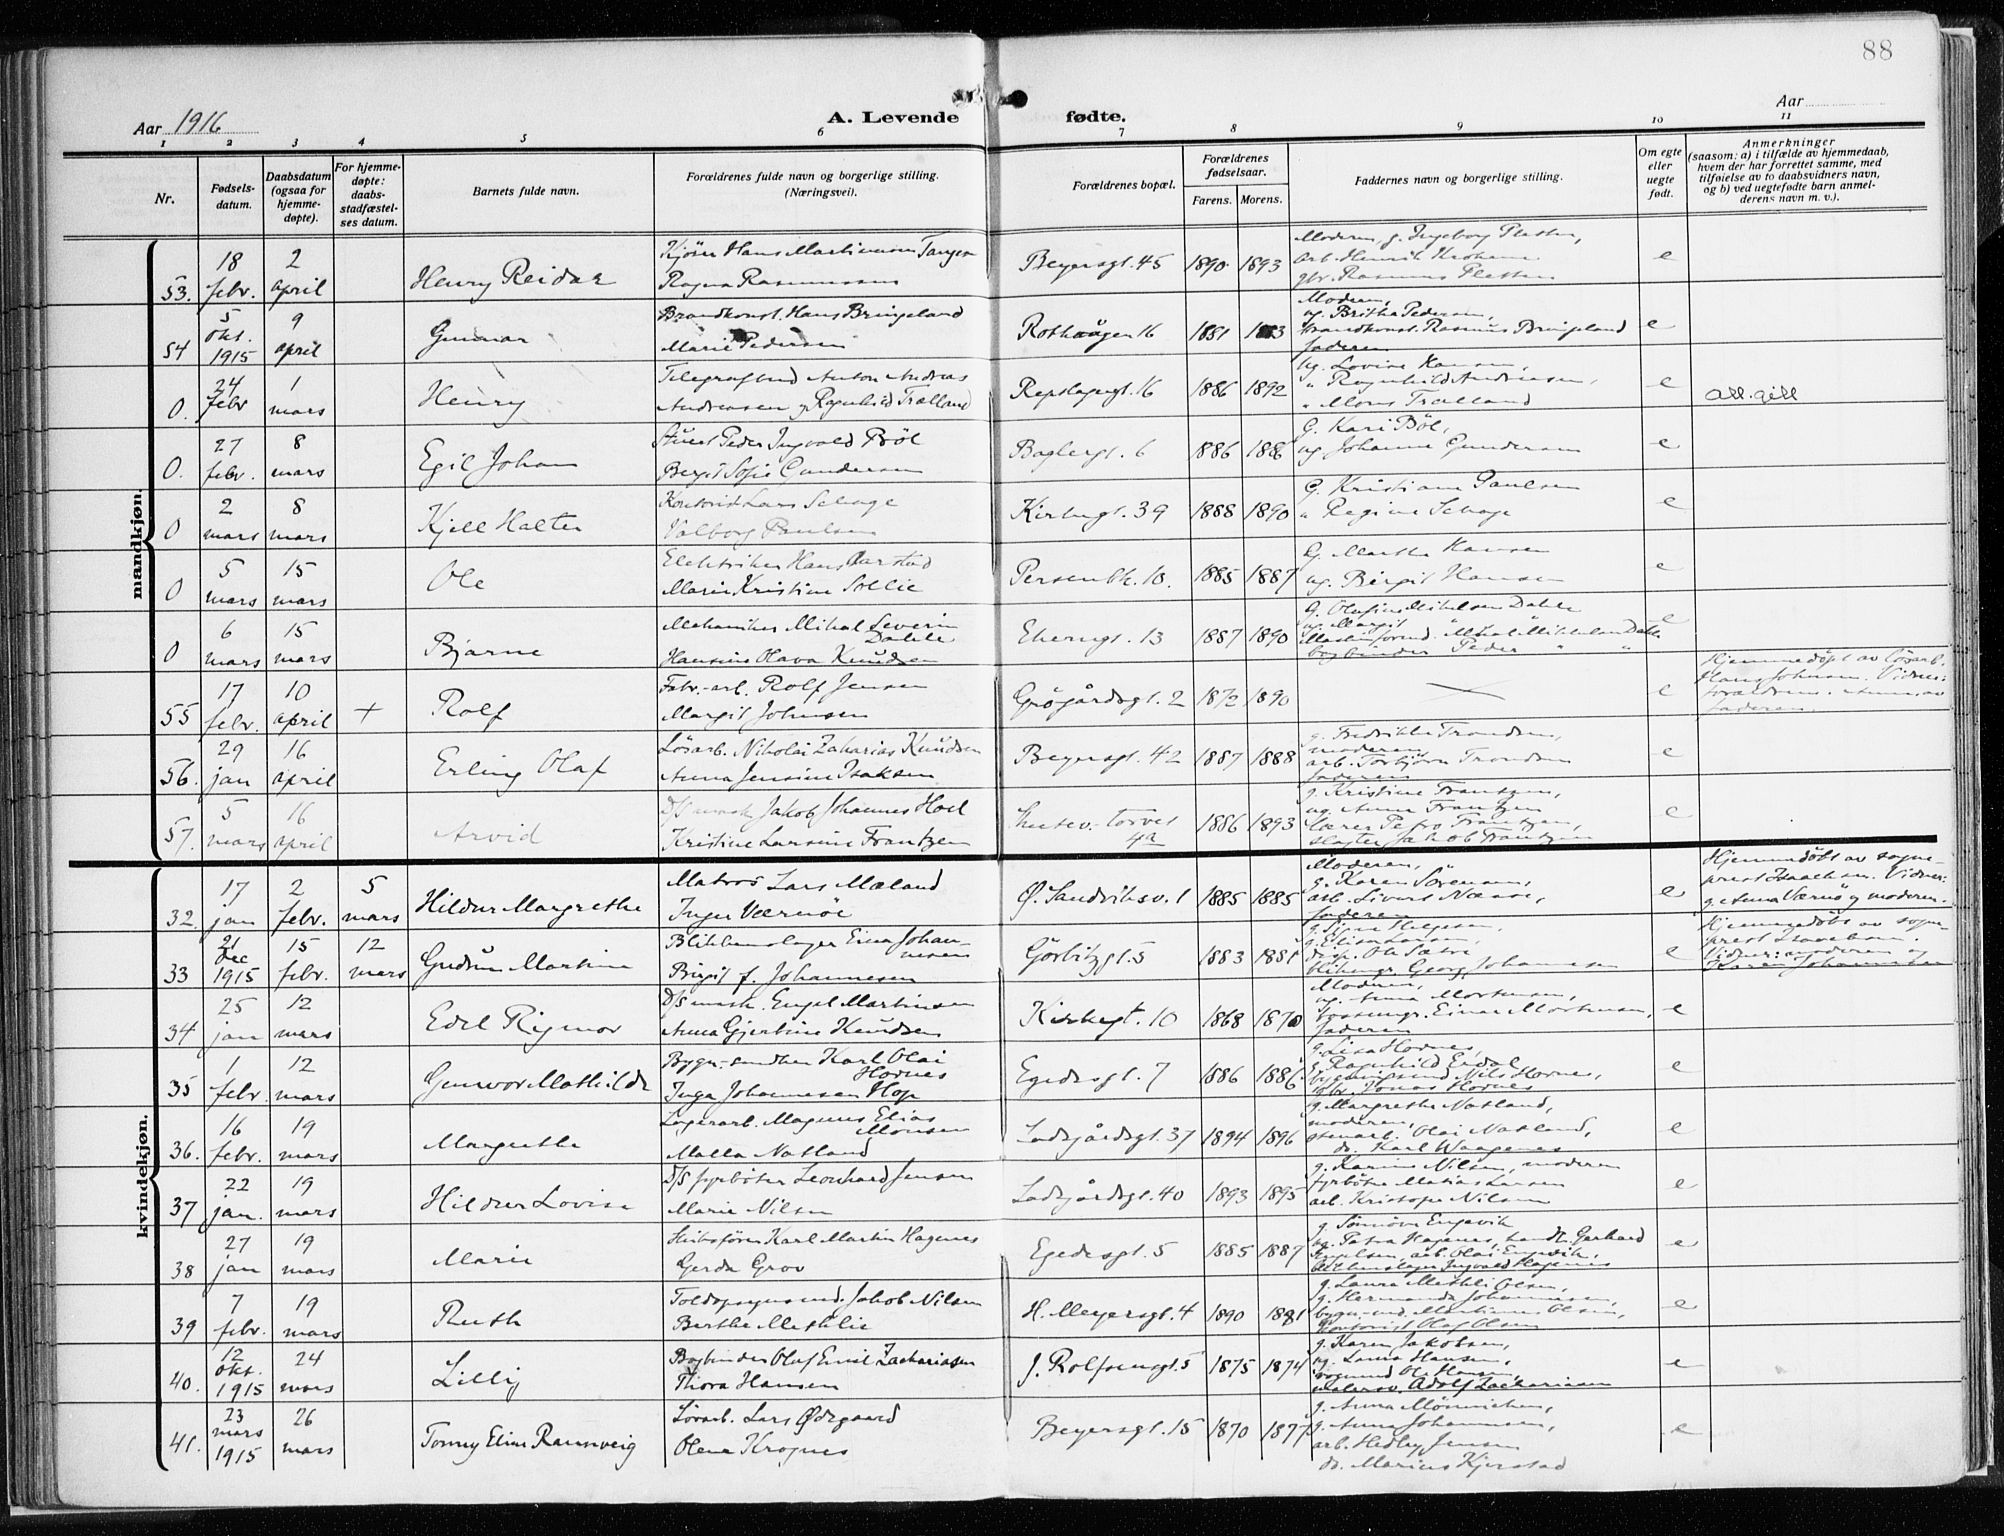 88
Aar 1916
A. Levende fødte.
Aar
1 2 3 4 5 6 7 8 9 10 11
Nr.
Fødsels-datum.
Daabsdatum (ogsaa for hjemme-døpte).
For hjemme-døpte: daabs-stadfæstel-ses datum.
Barnets fulde navn.
Forældrenes fulde navn og borgerlige stilling. (Næringsveil).
Forældrenes bopæl.
Forældrenes fødselsaar.
Farens. Morens.
Faddernes navn og borgerlige stilling.
Om egte eller uegte født.
Anmerkninger (saasom: a) i tilfælde av hjemmedaab, hvem der har forrettet samme, med tilføielse av to daabsvidners navn, og b) ved uegtefødte barn anmel-derens navn m. v.).
mandkjøn.
53. 18 febr. 2 april Henry Reidar
Hans Martinsen Tangen
Ragna Rasmussen
Beyersgt. 45 1890 1893
Moderen, g. Ingeborg
arb. Henrik
Rasmus
e
54 5 okt. 1915 9 april Gunnar
Brandkonst. Hans Bringeland
Marie Pedersen
Rothaugen 16 1881
Moderen,
ug. Britha Pedersen,
brandkonst. Rasmus Bringeland
faderen
e
0. 24 febr 1 mars Henry
Telegrafbud Anton Andreas
Andreasen g Ragnhild Trælland
Repslagergt. 16 1886 1892
ug. Lovise Hansen,
" Ragnhild Andreasen,
" Mons Trælland
e
att. gitt
0. 27 febr. 8 mars Egil Johan
Stuert Peder Ingvald Bøl
Bergit Sofie Gundersen
Baglergt. 6 1886 1886
G. Kari Bøl,
ug Johanne Gundersen
e
0 2 mars 8 mars Kjell Halter
Kontorist Lars Selvage
Valborg Paulsen
Kirkegt. 39 1888 1890
G. Kristiane Paulsen
" Regine Selvage
e
0 5 mars 15 mars Ole
Elektriker Hans Aarstad
Marie Kristine Sollie
Persenbk. 10. 1885 1887
G. Martha Hansen
ug. Birgit Hansen
e
0 6 mars 15 mars Bjarne
Mekaniker Mikal Severin Dahle
Hansine Olava Knudsen
Ekrengt. 13 1887 1890
G. Olufine Mikelsen Dahle
ug. Margit
bogbinder Peder " "
e
55 17 febr. 10 april + Rolf
Fabr.-arb. Rolf Jensen
Margit Johnsen
Grógårdsgt. 2 1872 1890
e
Hjemmedøpt av løsarb.
Hans Johnsen. Vidner:
forældrene. Anm. av
faderen.
56. 29 jan 16 april Erling Olaf
Løsarb. Nikolai Zakarias Knudsen
Anna Jensine Isaksen
Beyersgt. 42 1887 1888
g. Fredrikke Trondsen,
moderen,
arb. Torbjørn Trondsen
faderen
e
57. 5 mars 16 april Arvid
D/S mask. Jakob Johannes Hoel
Kristine Larsine Frantzen
1886 1893
g. Kristine Frantzen,
ug Anna Frantzen
Petra Frantzen,
slagter Jakob Frantzen
e
kvindekjøn.
32. 17 jan 2 febr. 5 mars Hildur Margrethe
Matros Lars Mæland
Inger Værnöe
Ø. Sandviksv. 1 1885 1885
Moderen,
g. Karen Sörensen,
arb. Sivert
faderen
e
Hjemmedøbt av sogne-
prest Isachsen. Vidner:
g. Anna Værnö og moderen.
33 21 dec 1915 15 febr. 12 mars Gudrun Martine
Blikkenslager Einar Johannesen
Birgit f. Johannesen
Görbitzgt. 5 1883 1881
g. Signe
g. Elisa Larsen,
Ole Sætre
Georg Johannesen
e
Hjemmedøbt av sogne-
prest Isachsen.
Vidner: moderen og
Karen Johannesen
34 25 jan 12 mars Edel Rigmor
D/S mask. Engel Martinsen
Anna Gjertine Knudsen
Kirkegt. 10 1868 1870
Moderen,
ug. Anna Mortensen,
Einar Mortensen,
faderen
e
35 1 febr. 12 mars Gunvor Mathilde
Bygn.-snedker Karl Olai Hornes
Inga Johannesen Hop
Egedesgt. 7 1886 1886
g. Lisa Hornes,
g. Ragnhild Eidal
Nils Hornes,
Jonas Hornes
e
36. 16 febr. 19 mars Margrethe
Lagerarb. Magnus Elias Monsen
Malla Natland
Ladegårdsgt. 37 1894 1896
g. Margrethe Natland,
moderen,
stenarb. Olai Natland,
do. Karl Waagenes
e
37 22 jan. 19 mars Hildur Lovise
D/S fyrbøter Leonhard Jensen
Marie Nilsen
Ladegårdsgt. 40 1893 1895
g. Karine Nilsen, moderen
fyrbøter Matias Larsen
arb. Kristofer Nilsen
e
38 27 jan 19 mars Marie
Skibsfører Karl Martin Hagenes
Gerda Grov
Egedesgt. 5 1885 1887
g. Sönnöve Engevik
ug. Petra Hagenes, handl. Gerhard
Engelsen, arb. Olai Engevik,
blikkenslager Ingvald Hagenes
e
39 7 febr. 19 mars Ruth
Toldopsynsmd. Jakob Nilsen
Berthe Methlie
H. Meyersgt. 4 1890 1881
g. Laura Methli Olsen,
g. Hermanda Johannesen,
Martinus Olsen,
Kontorist Olaf Olsen
e
40. 12 okt. 1915 24 mars Lilly
Bogbinder Olaf Emil Zachariasen
Thora Hansen
J. Rolfsensgt. 5 1875 1874
g. Karen Jakobsen,
ug. Laura Hansen,
vognmd Ole Hansen
malersv. Adolf Zachariasen
e
41. 23 mars 1915 26 mars Tonny Eline Rannveig
Løsarb. Lars Ødegaard
Olena Krognes
Beyersgt. 15 1870 1877
g. Anna Mönnichen,
g. Anna Johannesen,
arb. Hedley Jensen
do. Marius Kjerstad
e